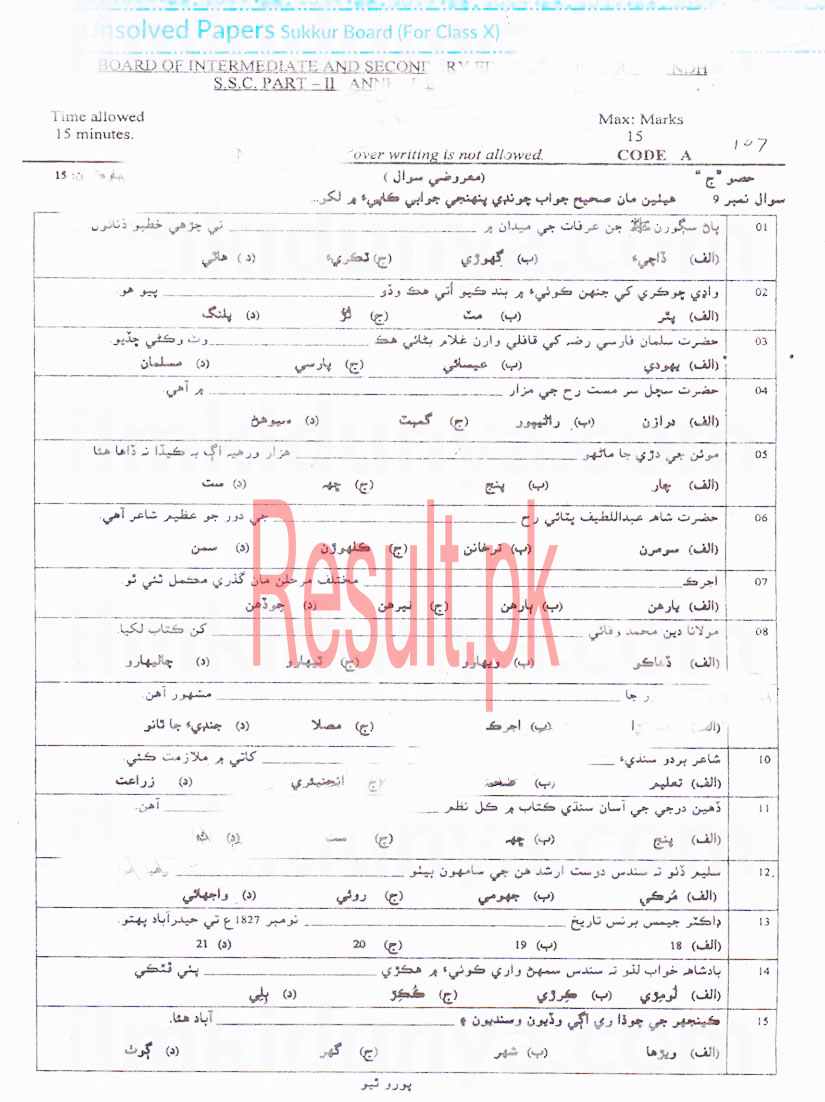 nsolved Papers Sukkur Board (For Class X)
BOARD OF INTERMEDIATE AND SECOND
S.S.C. PART – II
Time allowed
15 minutes.
Max: Marks
15
over writing is not allowed.
CODE A
107
حصو "ج" (معروضي سوال) 15
سوال نمبر 9 هيٺين مان صحيح جواب چونڊي پنهنجي جوابي ڪاپيءَ ۾ لکو...
01 پاڻ سڳورن ﷺ جن عرفات جي ميدان ۾ ____ تي چڙهي خطبو ڏنائون
(الف) ڏاچيءَ (ب) گهوڙي (ج) ٽڪريءَ (د) هاٿي
02 واڍي ڇوڪري کي جنهن کوئيءَ ۾ بند ڪيو اُتي هڪ وڏو ____ پيو هو.
(الف) پٿر (ب) مٽ (ج) لڙ (د) پلنگ
03 حضرت سلمان فارسي رضه کي قافلي وارن غلام بڻائي هڪ ____ وٽ وڪڻي ڇڏيو.
(الف) يهودي (ب) عيسائي (ج) پارسي (د) مسلمان
04 حضرت سچل سر مست رح جي مزار ____ ۾ آهي.
(الف) درازن (ب) راڻيپور (ج) گمبٽ (د) سيوهڻ
05 موئن جي دڙي جا ماڻهو ____ هزار ورهيه اڳ به ڪيڏا نه ڏاها هئا
(الف) چار (ب) پنج (ج) ڇهه (د) ست
06 حضرت شاهه عبداللطيف ڀٽائي رح ____ جي دور جو عظيم شاعر آهي.
(الف) سومرن (ب) ترخانن (ج) ڪلهوڙن (د) سمن
07 اجرڪ ____ مختلف مرحلن مان گذري مڪمل ٿئي ٿو
(الف) يارهن (ب) ٻارهن (ج) تيرهن (د) چوڏهن
08 مولانا دين محمد وفائي ____ کن ڪتاب لکيا.
(الف) ڏهاڪو (ب) ويهارو (ج) ٽيهارو (د) چاليهارو
ر جا ____ مشهور آهن.
(الف) (ب) اجرڪ (ج) مصلا (د) جنڊيءَ جا ٿانو
10 شاعر بردو سنڌيءَ ____ کاتي ۾ ملازمت ڪئي.
(الف) تعليم (ب) صحت (ج) انجنيئري (د) زراعت
11 ڏهين درجي جي آسان سنڌي ڪتاب ۾ ڪل نظم ____ آهن.
(الف) پنج (ب) ڇهه (ج) ست (د) اٺ
12. سليم ڏٺو ته سندس دوست ارشد هن جي سامهون بيٺو ____
(الف) مُرڪي (ب) جهومي (ج) روئي (د) واجهائي
13 ڊاڪٽر جيمس برنس تاريخ ____ نومبر 1827ع تي حيدرآباد پهتو.
(الف) 18 (ب) 19 (ج) 20 (د) 21
14 بادشاهه خواب لڌو ته سندس سمهڻ واري کوئيءَ ۾ هڪڙي ____ پئي ٽنگي
(الف) لُومڙي (ب) ڪِرڙي (ج) ڪُڪڙ (د) ٻلي
15 ڪينجهر جي چوڌاري اڳي وڏيون وسنديون ۽ ____ آباد هئا.
(الف) ويڙها (ب) شهر (ج) گهر (د) ڳوٺ
پورو ٿيو
Result.pk